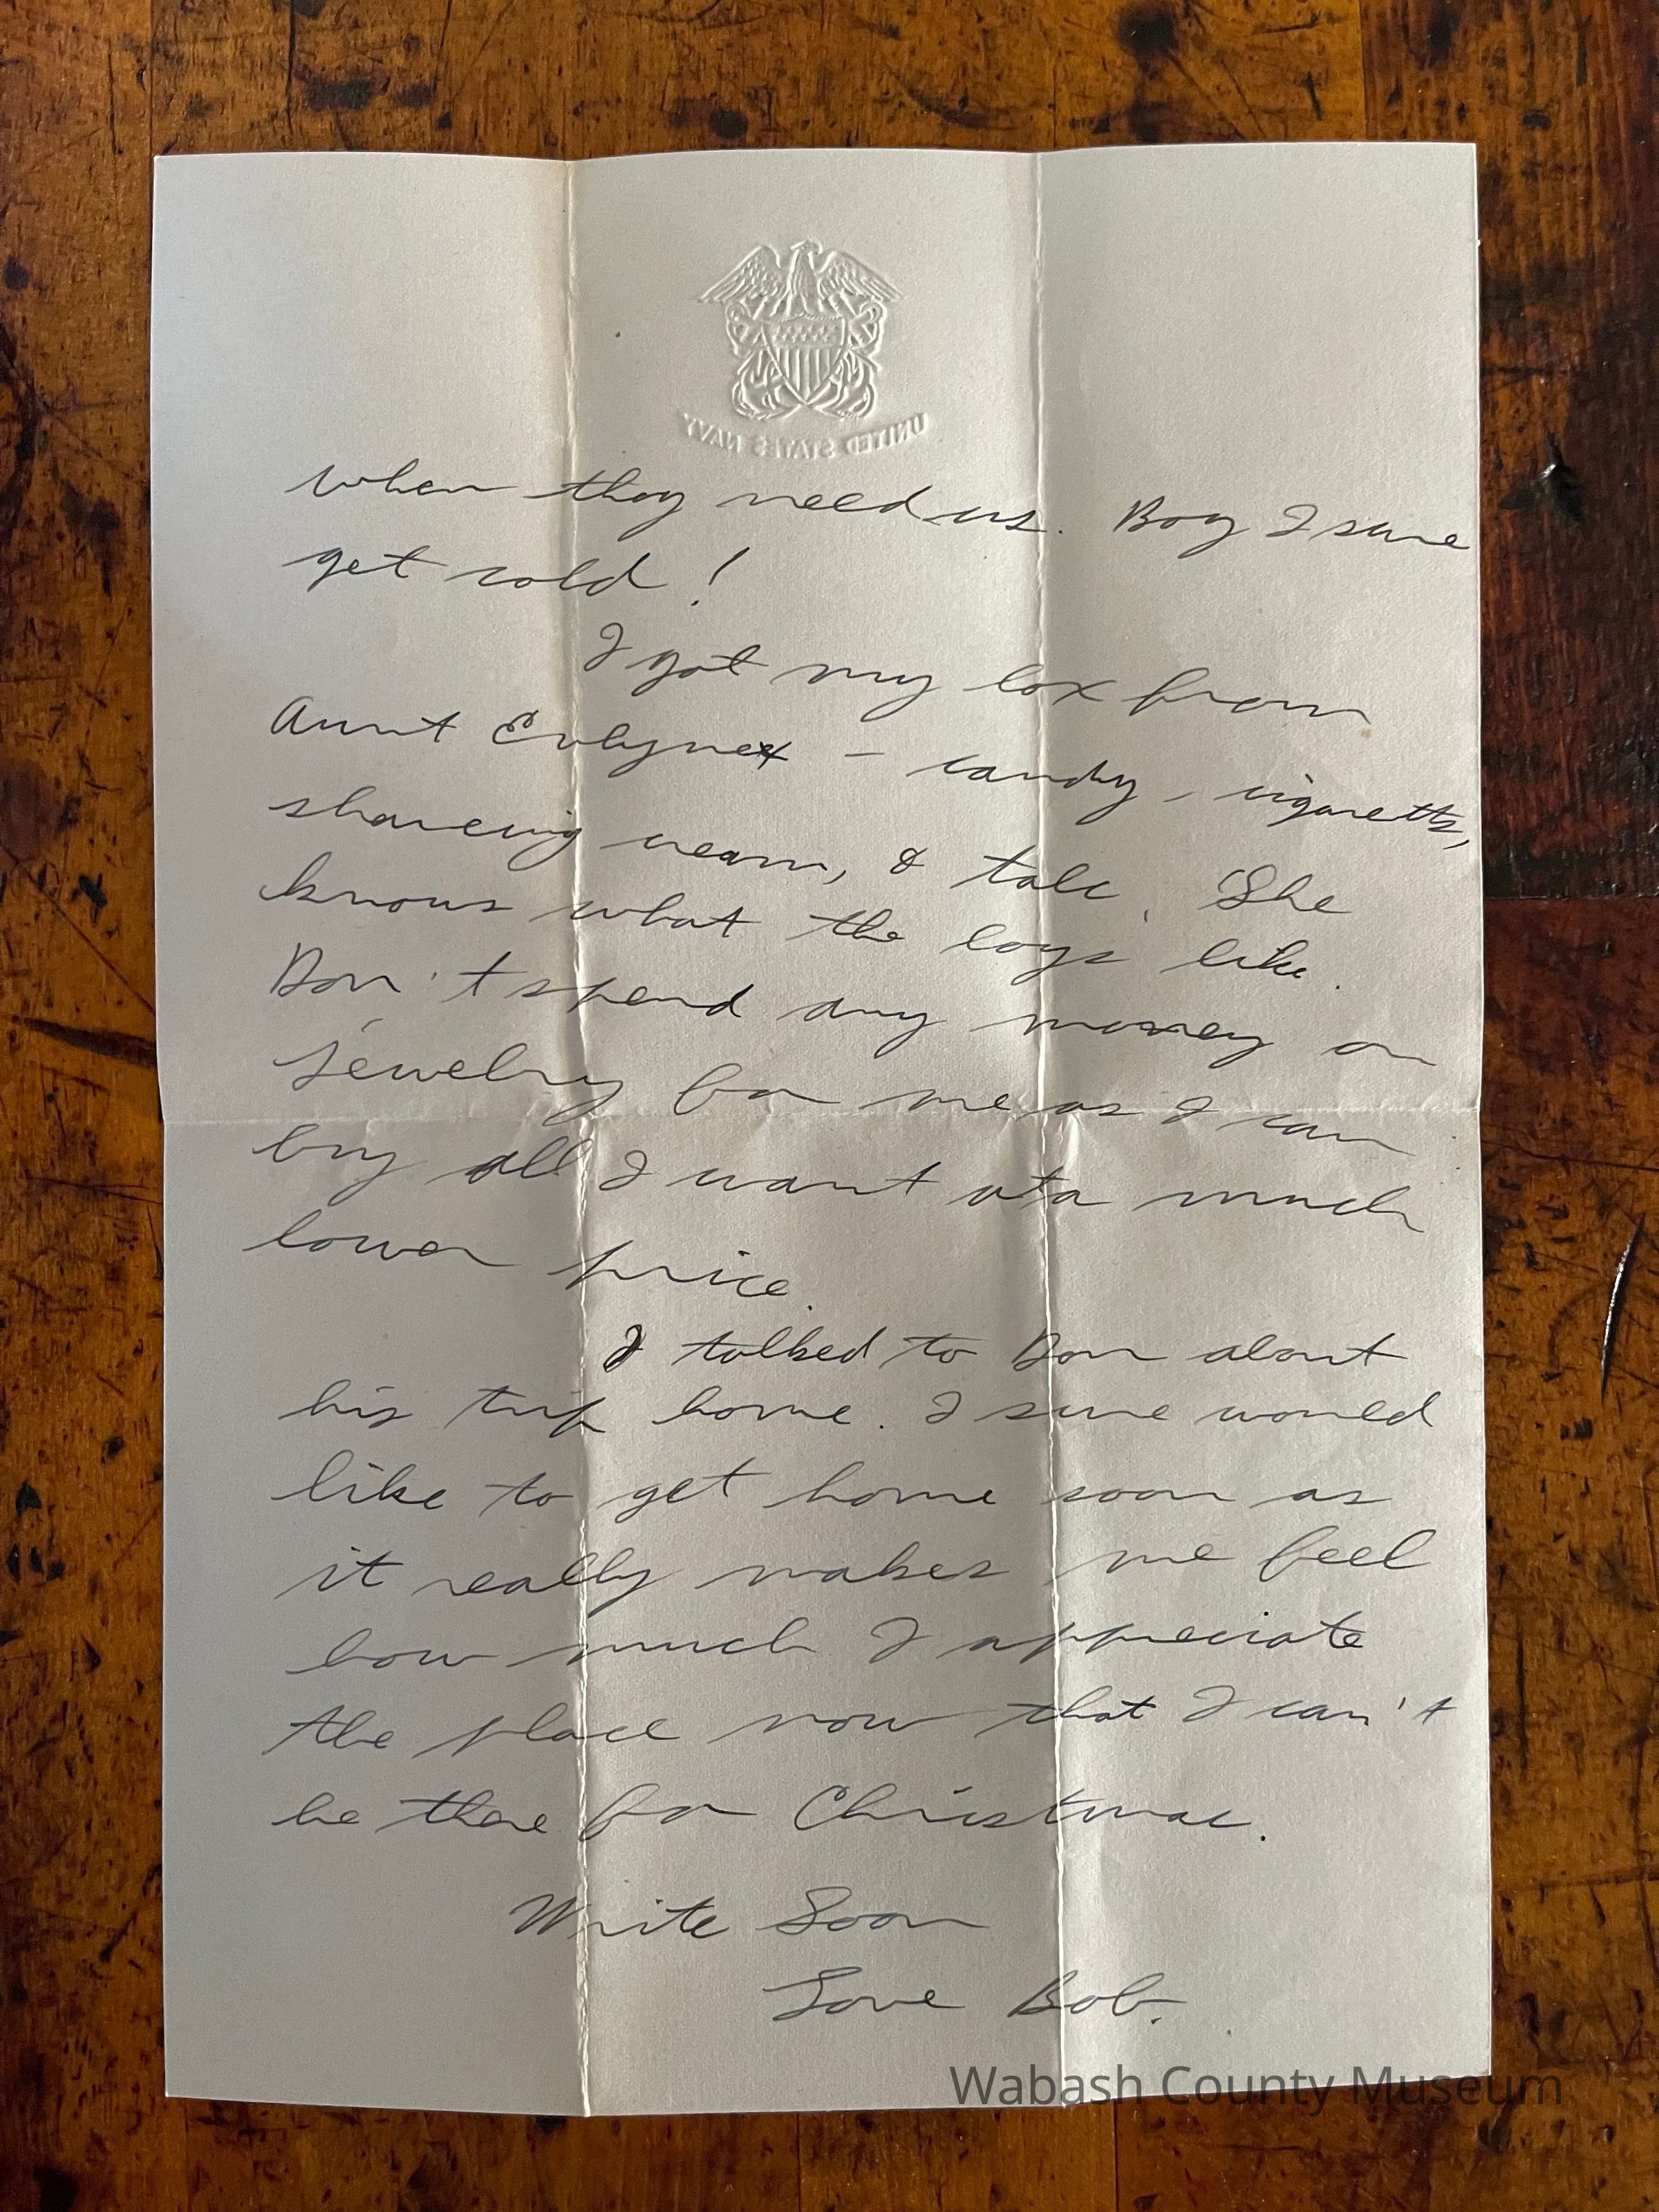 UNITED STATES NAVY
when they need us. Boy I sure
get cold!
I got my box from
Aunt Evelyn - candy, cigaretts,
shaveing cream, & talc. She
knows what the boys like.
Don't spend any money on
jewelry for me as I can
buy all I want at a much
lower price.
I talked to Don about
his trip home. I sure would
like to get home soon as
it really makes me feel
how much I appreciate
the place now that I can't
be there for Christmas.
Write Soon
Love Bob.
Wabash County Museum